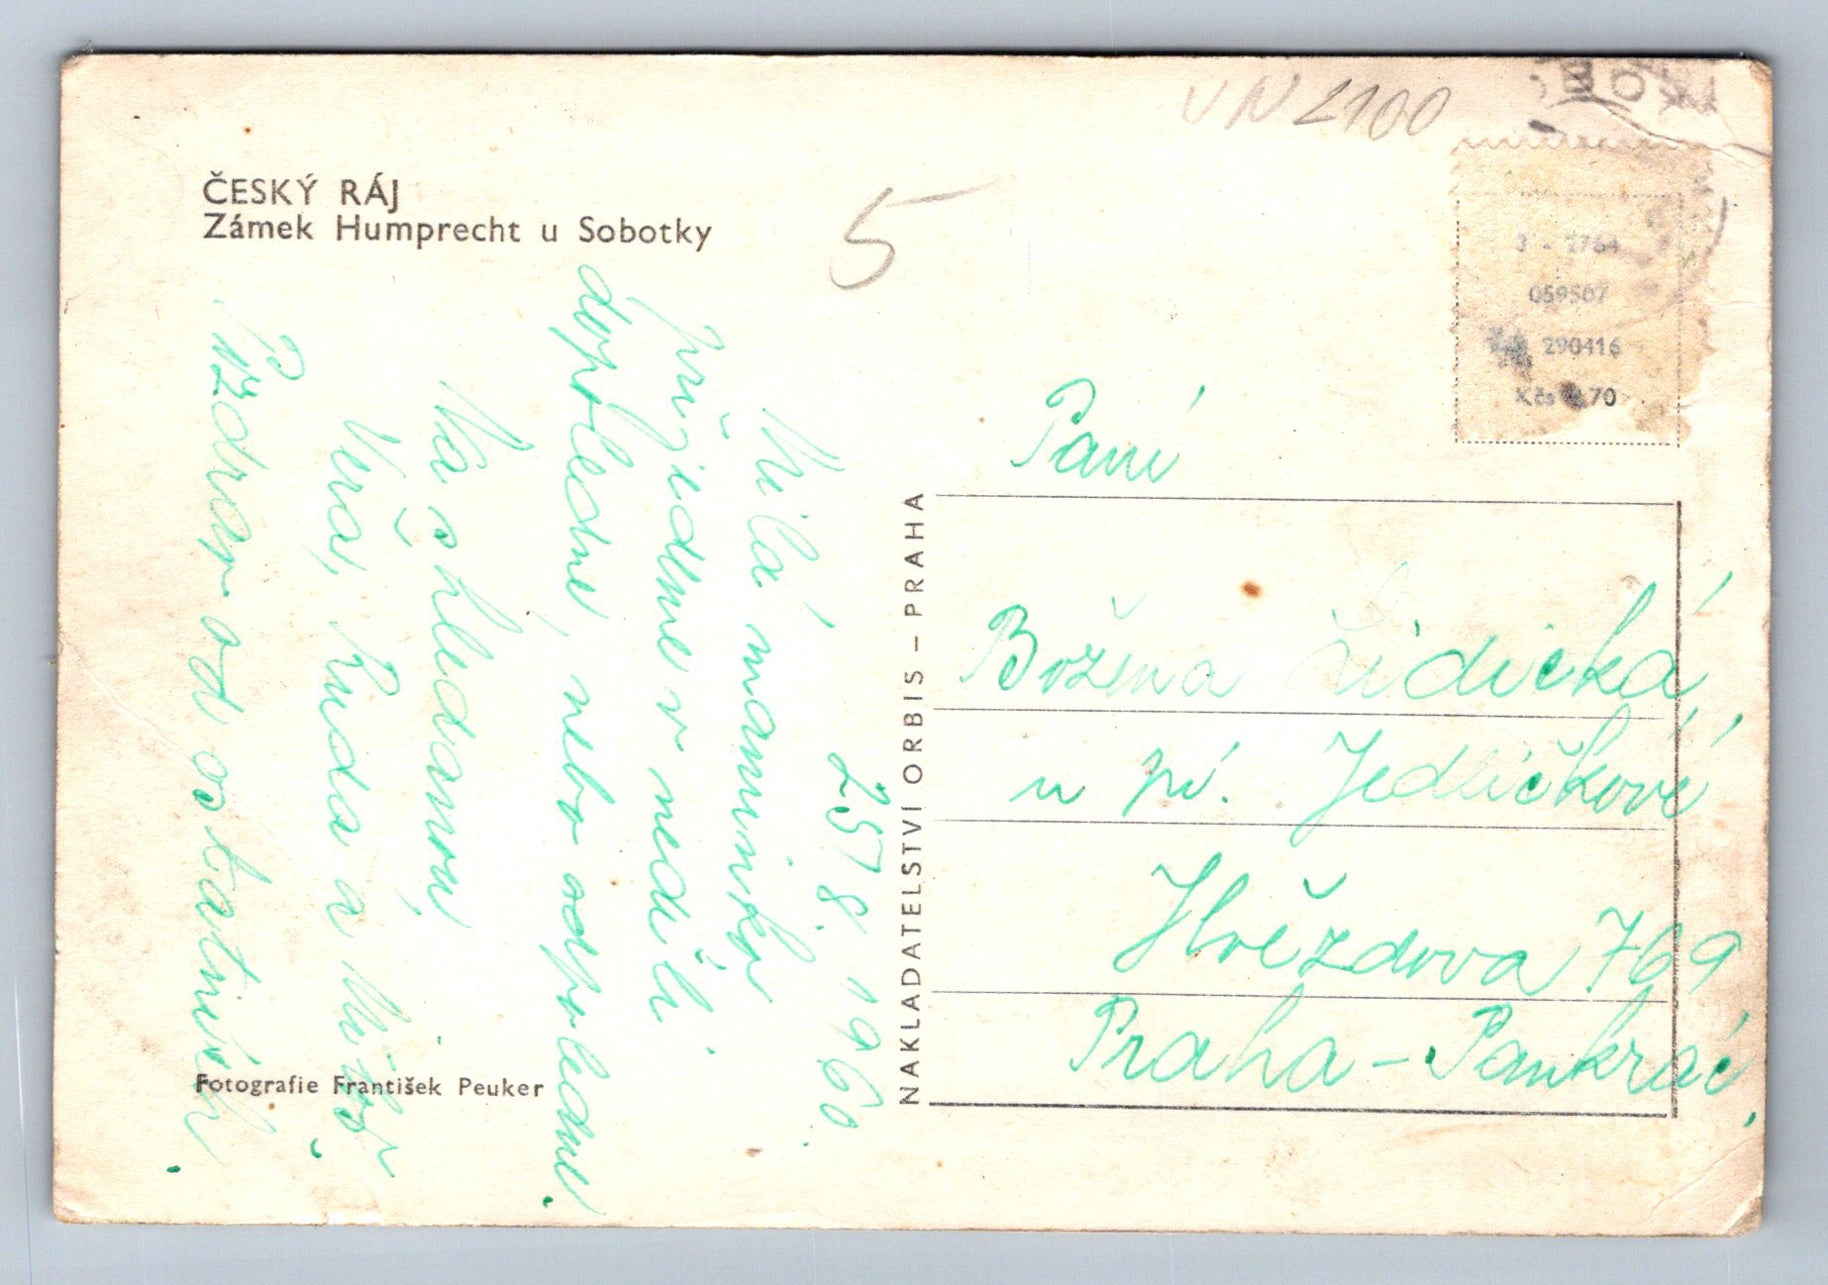 ČESKÝ RÁJ
Zámek Humprecht u Sobotky
VN 2100
5
3 - 2764
059507
290416
Kčs 70
25/8. 1960.
Milá maminko
přijedme v neděli
dopoledne, nebo odpoledne.
Na shledanou
Věra, Ruda a Mílos
Pozdrav od ostatních.
Paní
Božena Židická
u pí. Jedličkové
Hvězdova 769
Praha - Pankrác,
NAKLADATELSTVÍ ORBIS – PRAHA
Fotografie František Peuker